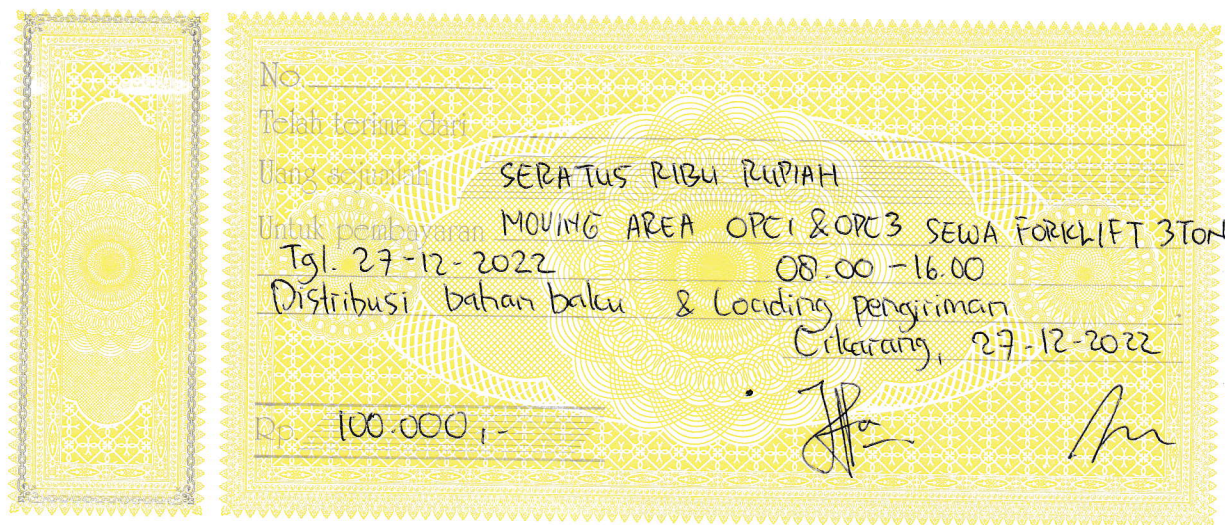 No.
Telah terima dari
Uang sejumlah SERATUS RIBU RUPIAH
Untuk pembayaran MOVING AREA OPC1 & OPC3 SEWA FORKLIFT 3TON
Tgl. 27-12-2022 08.00 - 16.00
Distribusi bahan baku & Loading pengiriman
Cikarang, 27-12-2022
Rp. 100.000,-